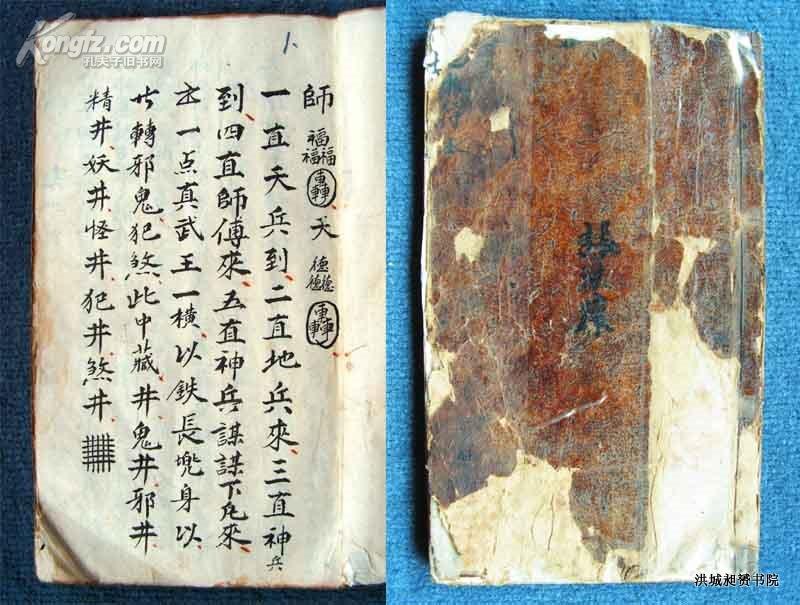 Kongfz.com
孔夫子旧书网
師 福福福 天 德德德
一直天兵到二直地兵來三直神兵
到四直師傅來五直神兵謀謀下凡來
一点真武王一橫以鉄長兜身以
轉邪鬼犯煞此中藏井鬼井邪井
精井妖井怪井犯井煞井
洪城昶赟书院